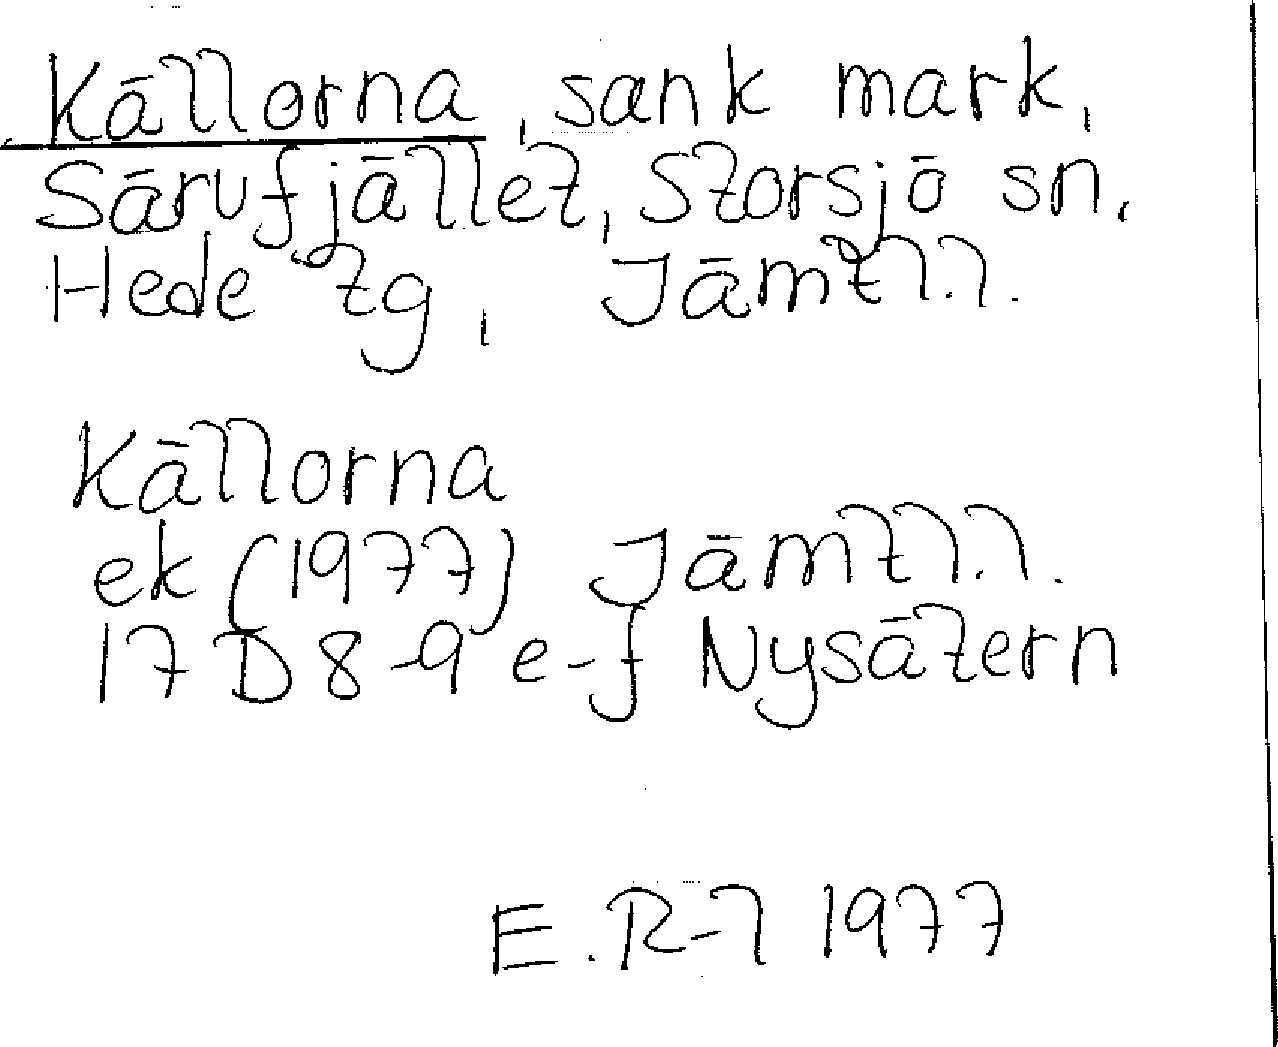 Källorna, sank mark,
Särvfjället, Storsjö sn,
Hede tg, Jämtl.l.
Källorna
ek (1977) Jämtl.l.
17 D 8-9 e-f Nysätern
E.R-l 1977